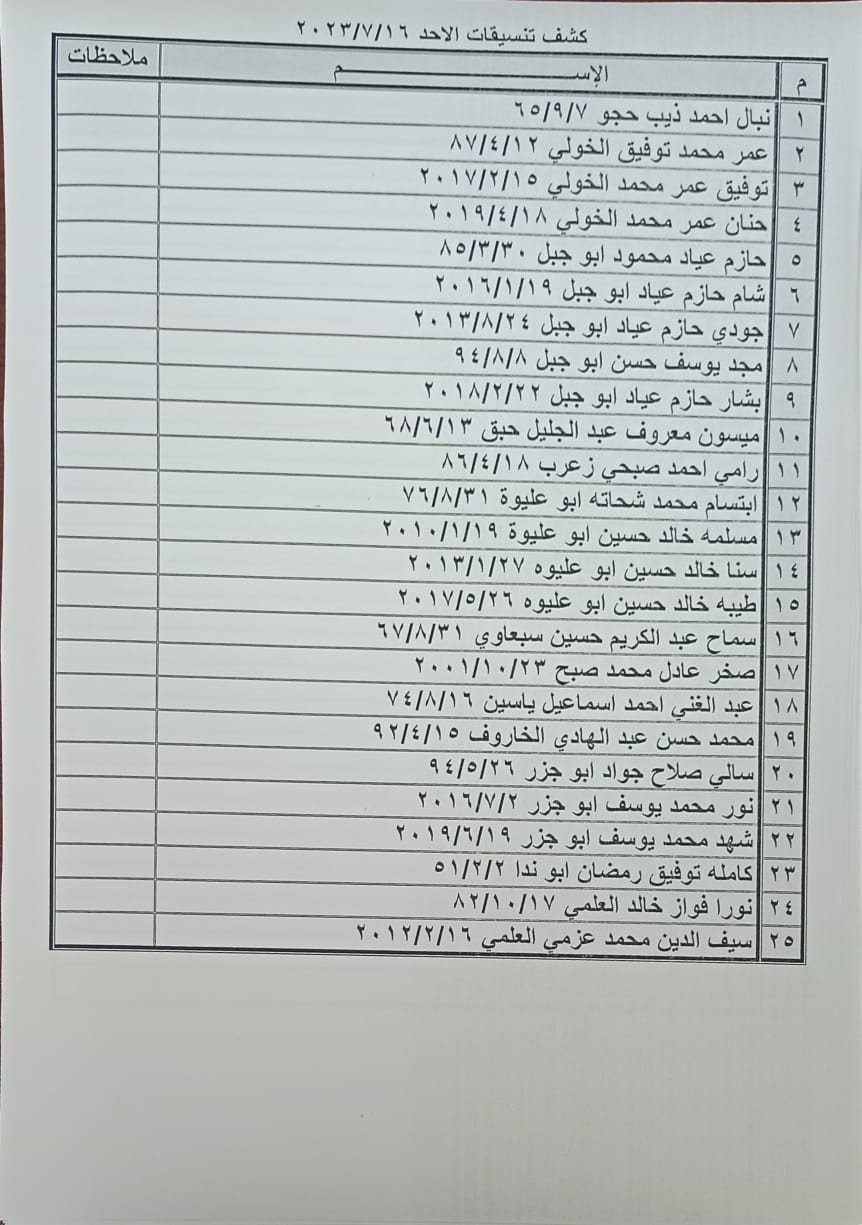 كشف تنسيقات الاحد ٢٠٢٣/٧/١٦
م الإســـــــــــــم ملاحظات
١ نبال احمد ذيب حجو ٦٥/٩/٧
٢ عمر محمد توفيق الخولي ٨٧/٤/١٢
٣ توفيق عمر محمد الخولي ٢٠١٧/٢/١٥
٤ حنان عمر محمد الخولي ٢٠١٩/٤/١٨
٥ حازم عياد محمود ابو جبل ٨٥/٣/٣٠
٦ شام حازم عياد ابو جبل ٢٠١٦/١/١٩
٧ جودي حازم عياد ابو جبل ٢٠١٣/٨/٢٤
٨ مجد يوسف حسن ابو جبل ٩٤/٨/٨
٩ بشار حازم عياد ابو جبل ٢٠١٨/٢/٢٢
١٠ ميسون معروف عبد الجليل حبق ٦٨/٦/١٣
١١ رامي احمد صبحي زعرب ٨٦/٤/١٨
١٢ ابتسام محمد شحاته ابو عليوة ٧٦/٨/٣١
١٣ مسلمه خالد حسين ابو عليوة ٢٠١٠/١/١٩
١٤ سنا خالد حسين ابو عليوه ٢٠١٣/١/٢٧
١٥ طيبه خالد حسين ابو عليوه ٢٠١٧/٥/٢٦
١٦ سماح عبد الكريم حسين سبعاوي ٦٧/٨/٣١
١٧ صخر عادل محمد صبح ٢٠٠١/١٠/٢٣
١٨ عبد الغني احمد اسماعيل ياسين ٧٤/٨/١٦
١٩ محمد حسن عبد الهادي الخاروف ٩٢/٤/١٥
٢٠ سالي صلاح جواد ابو جزر ٩٤/٥/٢٦
٢١ نور محمد يوسف ابو جزر ٢٠١٦/٧/٢
٢٢ شهد محمد يوسف ابو جزر ٢٠١٩/٦/١٩
٢٣ كامله توفيق رمضان ابو ندا ٥١/٢/٢
٢٤ نورا فواز خالد العلمي ٨٢/١٠/١٧
٢٥ سيف الدين محمد عزمي العلمي ٢٠١٢/٢/١٦